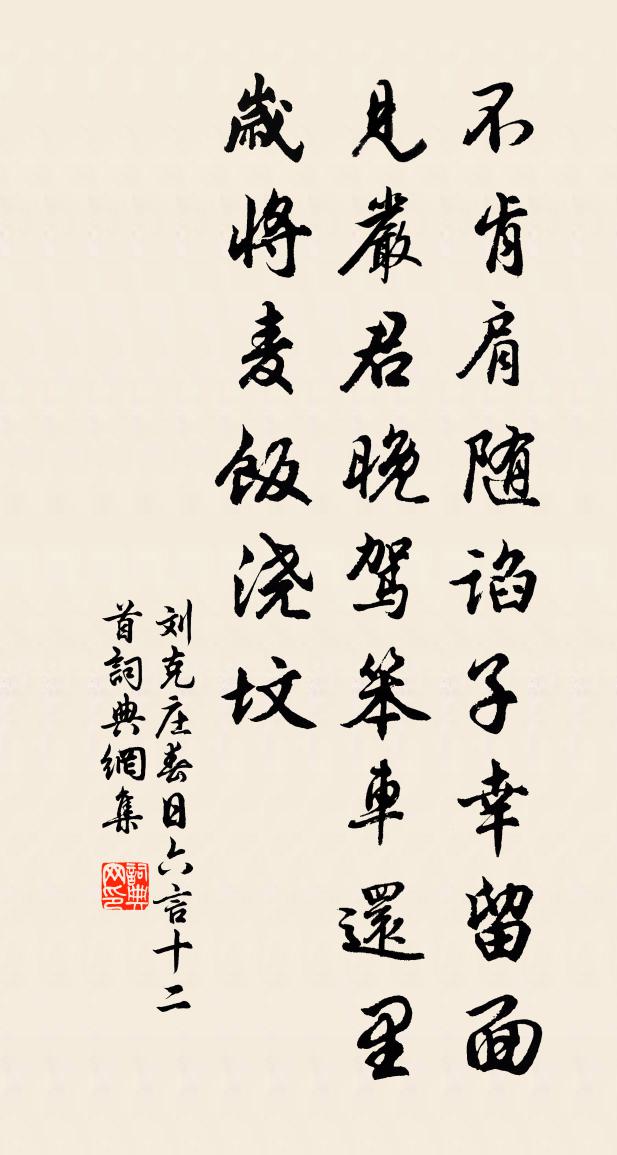 不肯肩随谄子幸留面
見嚴君晚驾笨車還里
歲将麦飯浇坟
刘克庄春日六言十二
首詞典網集
詞典网印